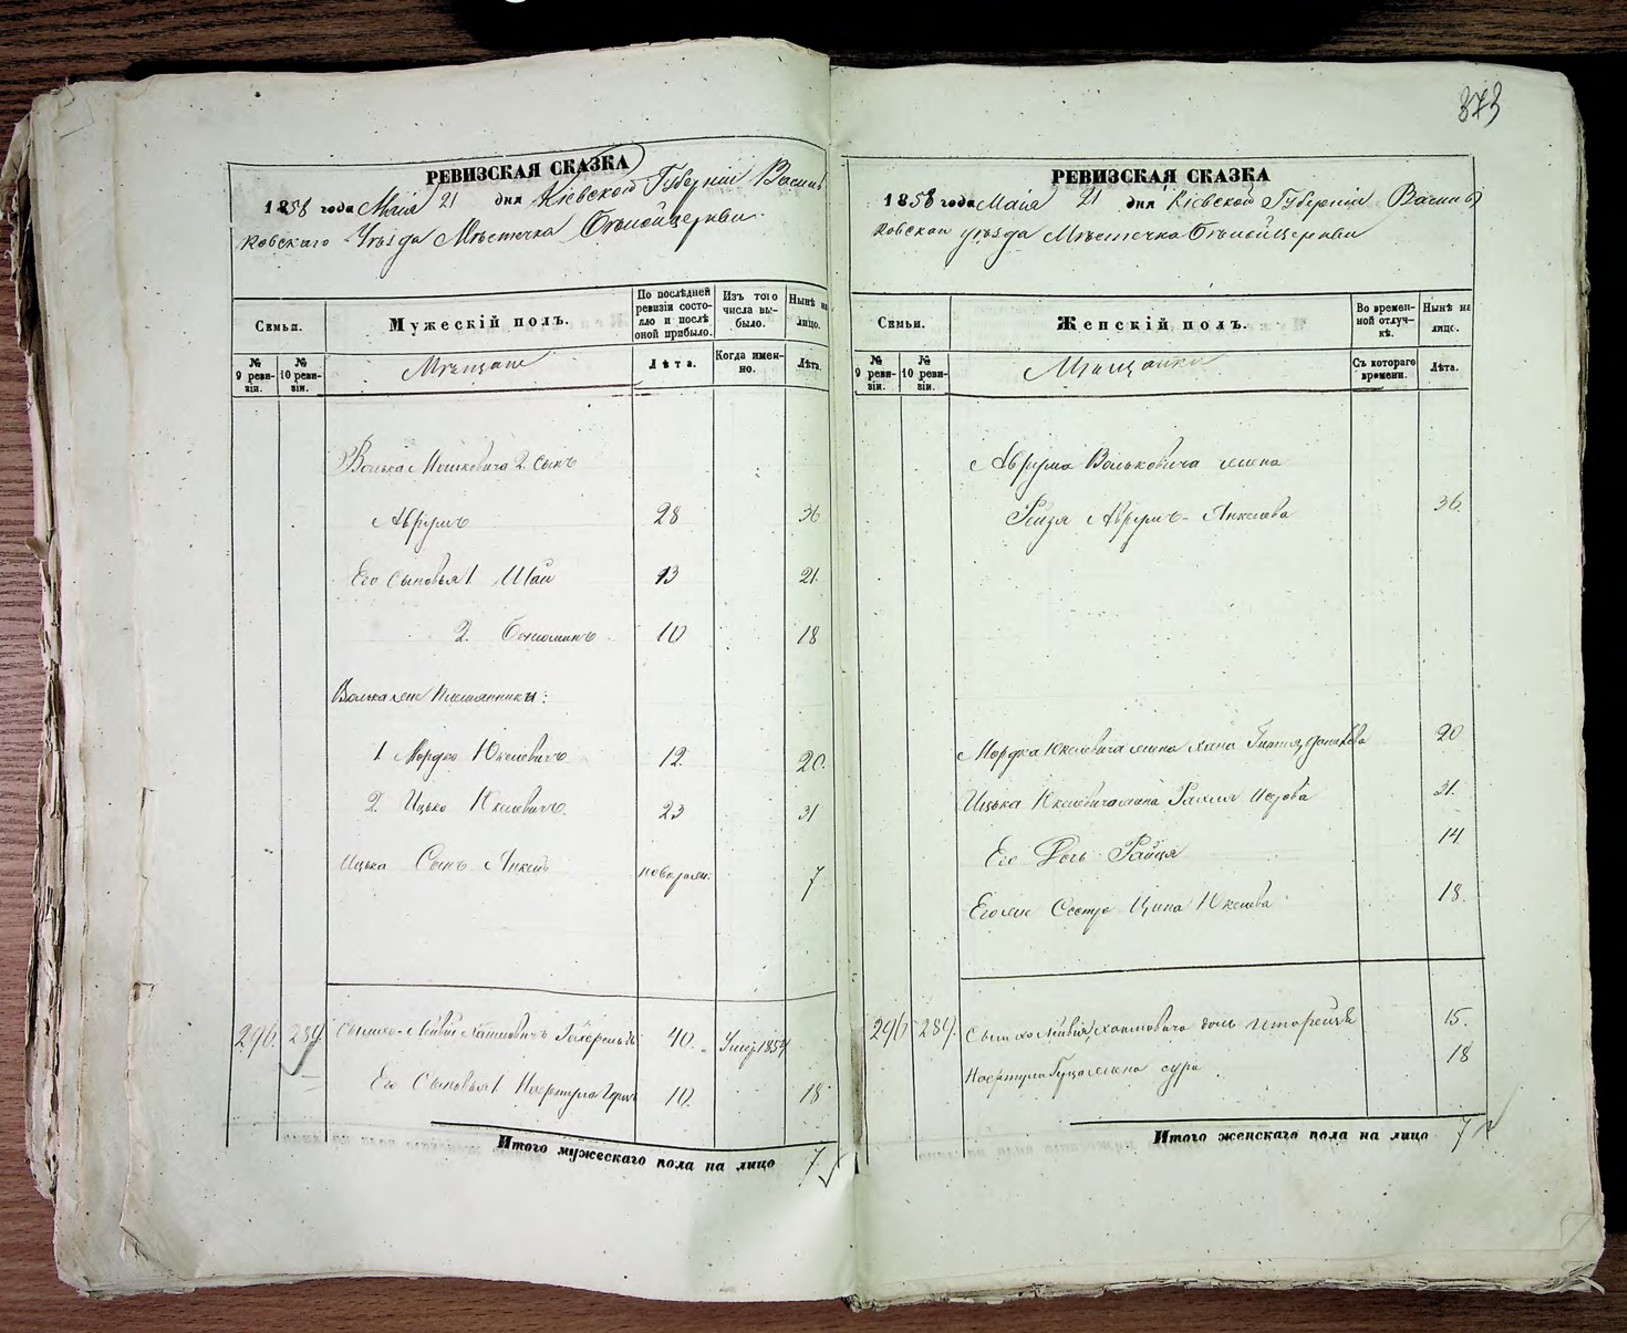 873
РЕВИЗСКАЯ СКАЗКА
1858 года Мая 21 дня Кіевской Губерніи Василь
ковскаго Уѣзда Мѣстечка Бѣлойцеркви
Семьи.
Мужескій полъ.
По послѣдней ревизіи состояло и послѣ оной прибыло.
Изъ того числа выбыло.
Нынѣ на лицо.
№ 9 ревизіи.
№ 10 ревизіи.
Мѣщане
Лѣта.
Когда именно.
Лѣта.
Волька Мошковича 2. сынъ
Аврумъ 28 36
Его сыновья 1. Шая 13 21
2. Бениоминъ 10 18
Волька же племянники:
1 Мордко Юкелевичъ 12. 20.
2. Ицько Юкелевичъ. 23 31
Ицька Сынъ Янкель 7
296. 289. 40. Умер. 1854
Его Сыновья 1. 10. 18
Итого мужескаго пола на лицо 7.
РЕВИЗСКАЯ СКАЗКА
1858 года Мая 21 дня Кіевской Губерніи Василь
ковскаго уѣзда Мѣстечка Бѣлойцеркви
Семьи.
Женскій полъ.
Во временной отлучкѣ.
Нынѣ на лицо.
№ 9 ревизіи.
№ 10 ревизіи.
Мѣщанки
Съ котораго времени.
Лѣта.
Аврума Вольковича жена
Рейзя Аврумъ-Янкелева 36.
Мордка Юкелевича жена Хана 20
Ицька Юкелевича жена Рахля 31.
Его Дочь Райця 14
Его же Сестра Ципа Юкелева 18.
296 289. дочь 15.
жена сура 18
Итого женскаго пола на лицо 7